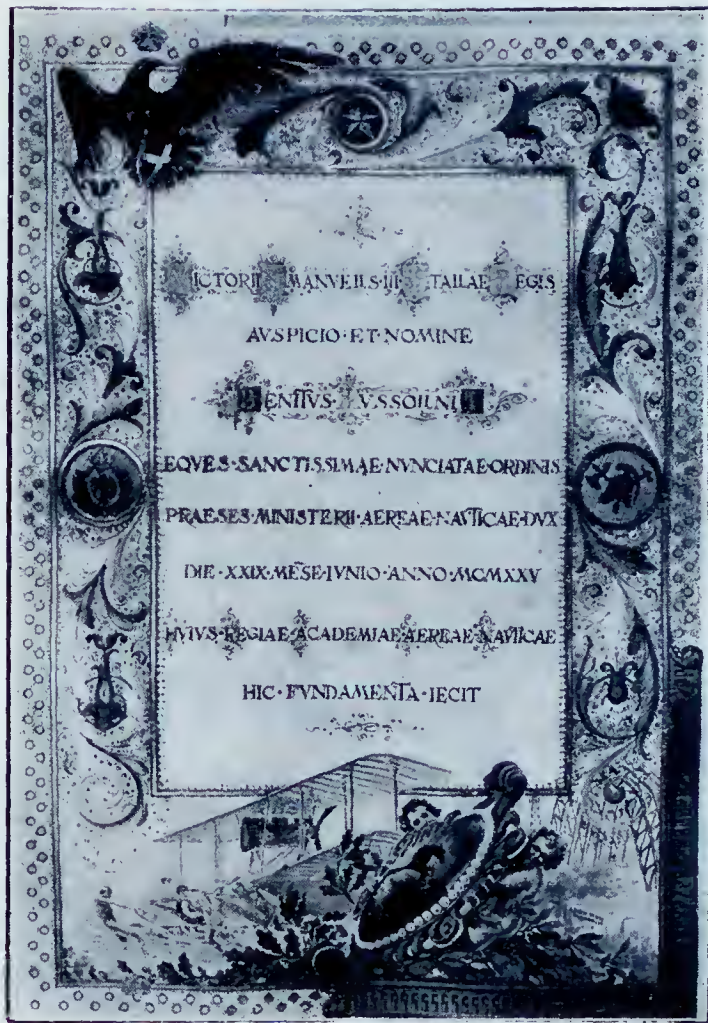 VICTORII EMANVELIS·III ITALIAE REGIS
AVSPICIO·ET·NOMINE
BENITVS·MVSSOLINI
EQVES·SANCTISSIMAE·NVNCIATAE·ORDINIS
PRAESES·MINISTERII·AEREAE·NAVTICAE·DVX
DIE·XXIX·MENSE·IVNIO·ANNO·MCMXXV
HVIVS·REGIAE·ACADEMIAE·AEREAE·NAVTICAE
HIC·FVNDAMENTA·IECIT